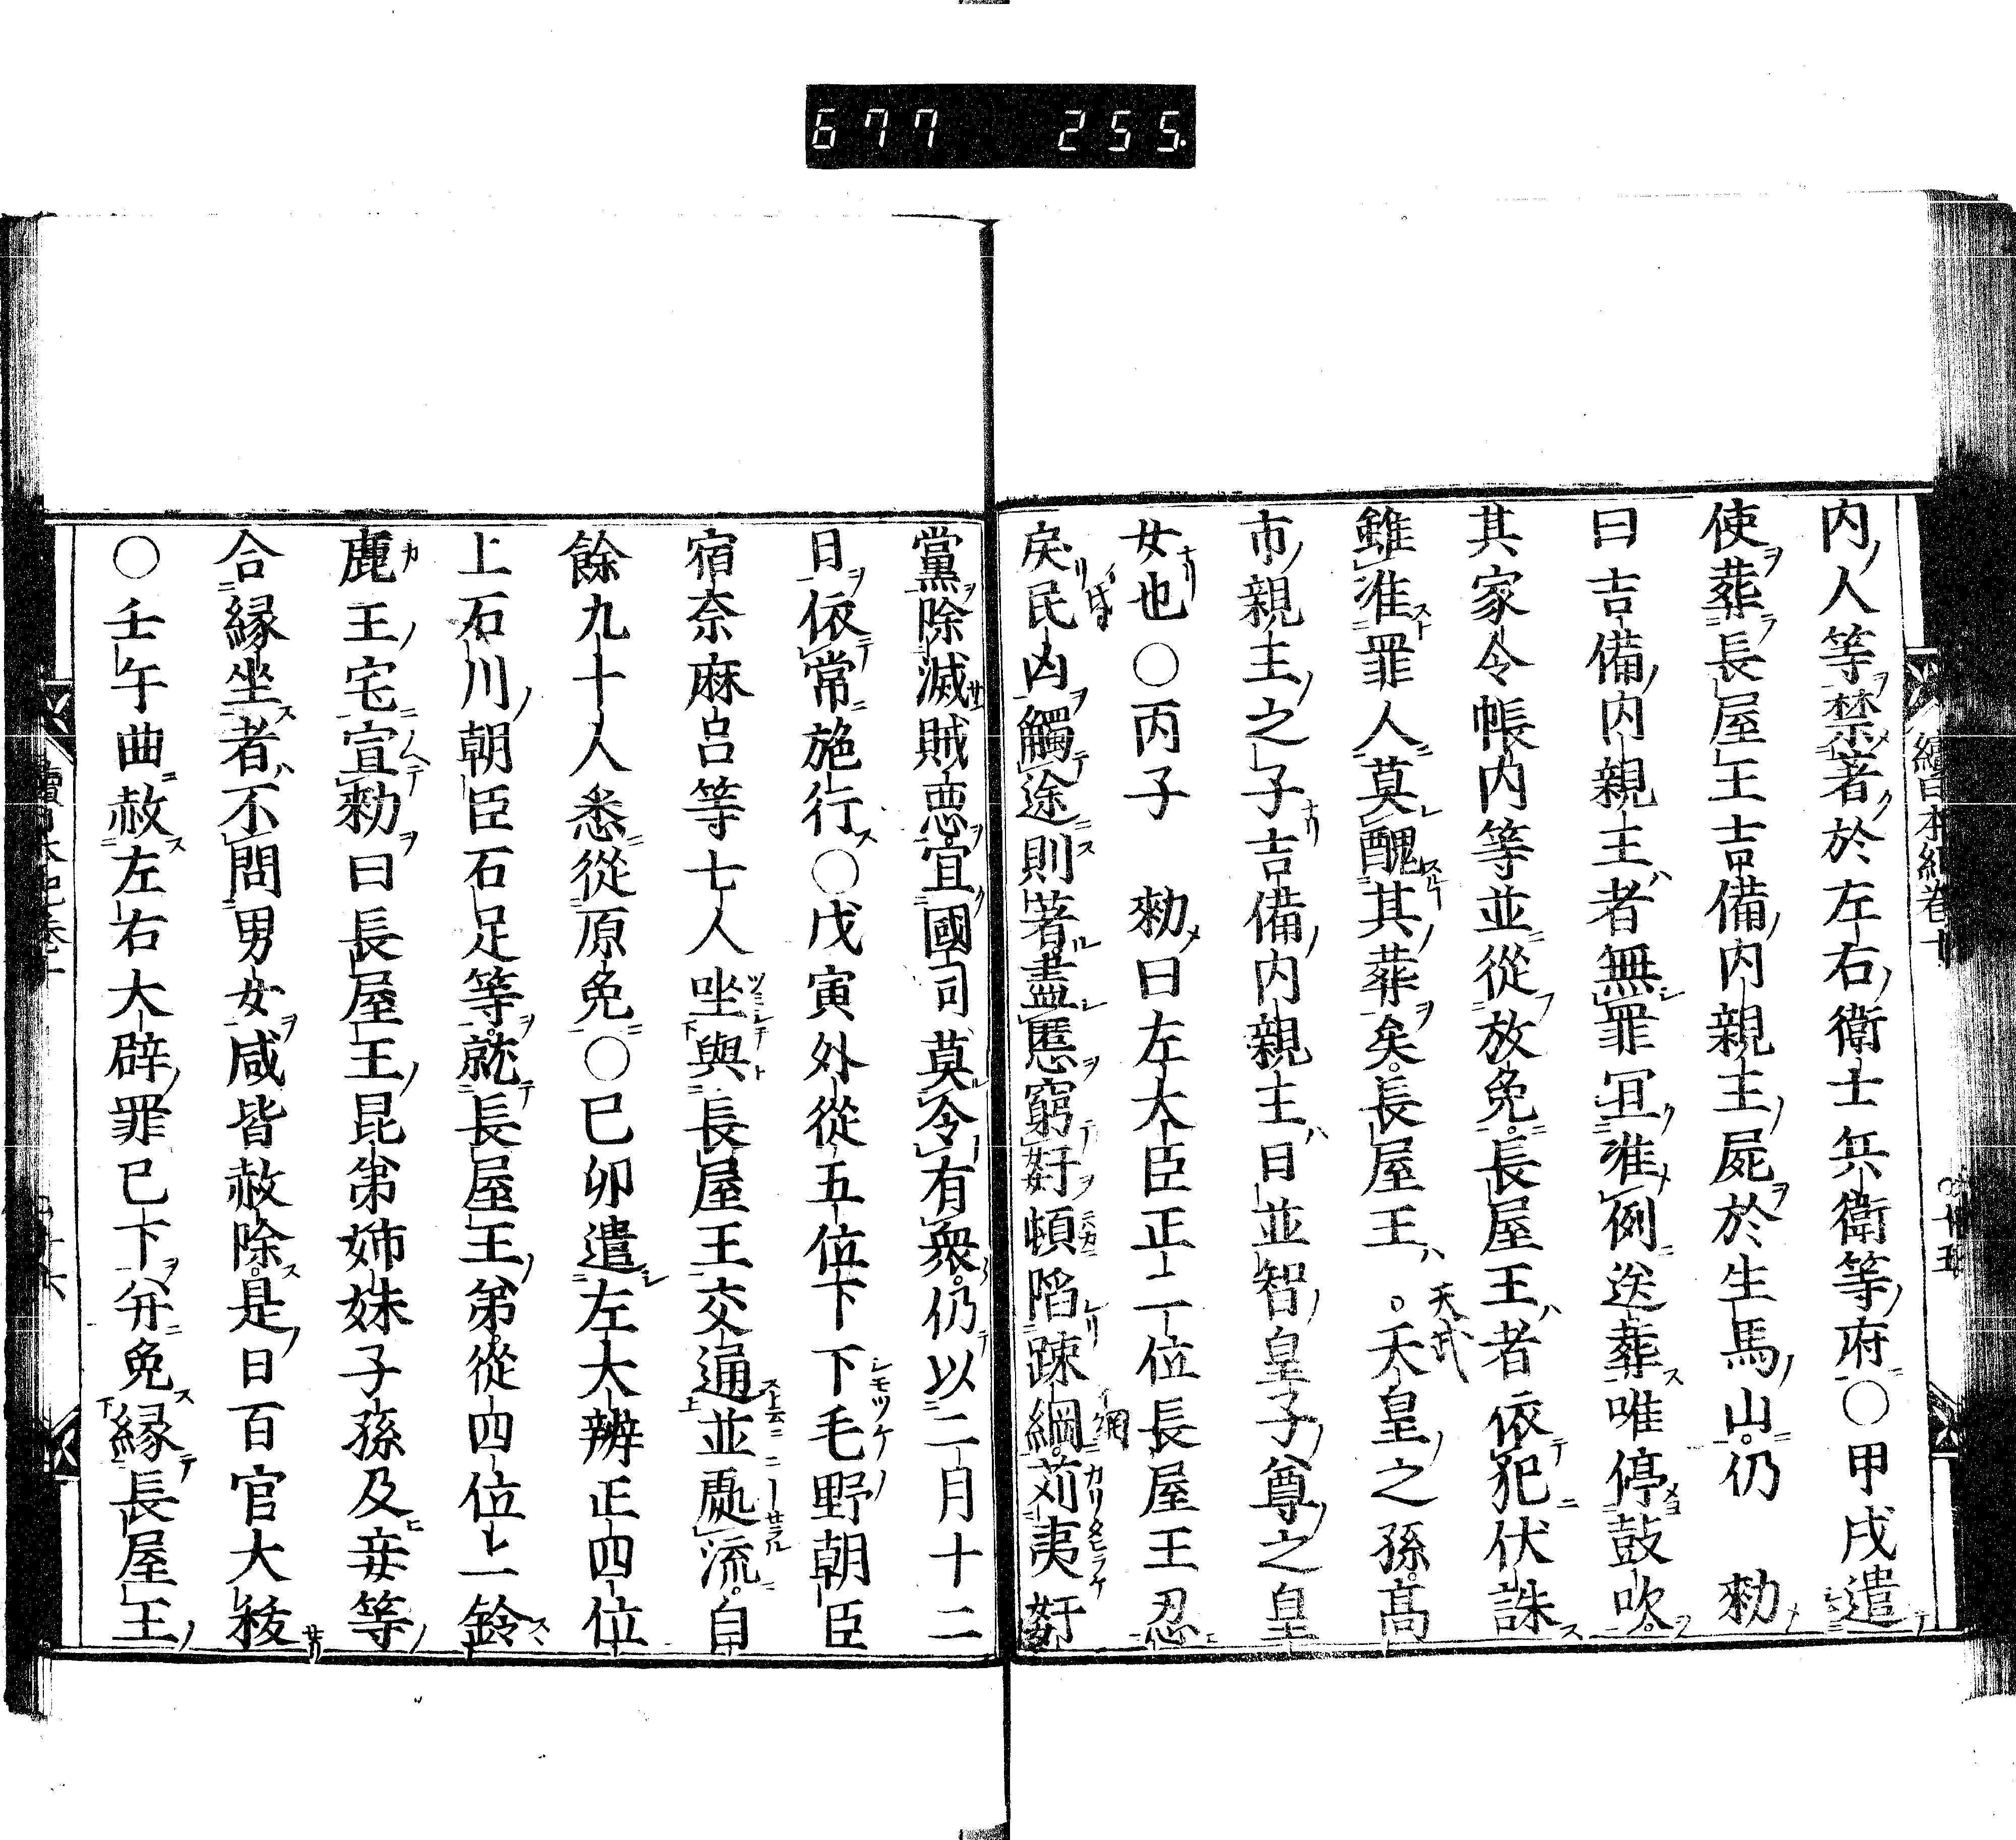 677 255
内人等禁著於左右衛士兵衛等府〇甲戌遣
使葬長屋王吉備内親王屍於生馬山仍 勅
曰吉備内親王者無罪冝准例送葬唯停鼓吹
其家令帳内等並從放免長屋王者依犯伏誅
雖准罪人莫醜其葬矣長屋王天武天皇之孫高
市親王之子吉備内親王日並智皇子尊之皇
女也〇丙子 勅曰左大臣正二位長屋王忍
戻昏凶觸途則著盡慝窮奸頓陷踈網苅夷奸
黨除滅賊惡宜國司莫令有衆仍以二月十二
日依常施行〇戊寅外從五位下下毛野朝臣
宿奈麻呂等七人坐與長屋王交通並處流自
餘九十人悉從原免〇己卯遣左大辨正四位
上石川朝臣石足等就長屋王弟從四位上鈴
鹿王宅宣勅曰長屋王昆弟姉妹子孫及妾等
合縁坐者不問男女咸皆赦除是日百官大秡
〇壬午曲赦左右大辟罪已下并免縁長屋王